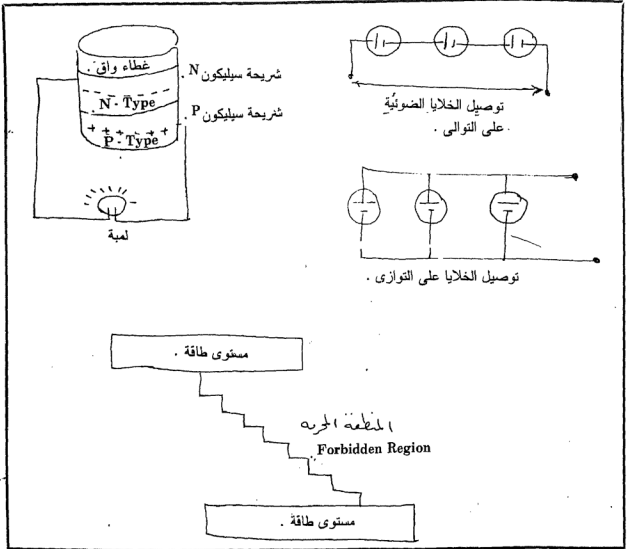 غطاء واق .
شريحة سيليكون N.
N - Type
شريحة سيليكون P.
+ + + + + +
P - Type
لمبة
توصيل الخلايا الضوئية
على التوالى .
توصيل الخلايا على التوازى .
مستوى طاقة .
المنطقة الحرجه
Forbidden Region
مستوى طاقة .